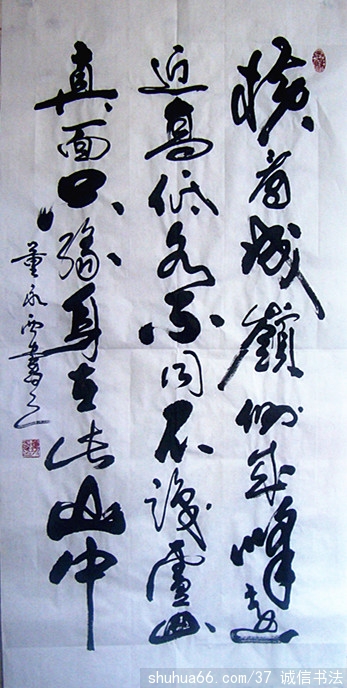 橫看成嶺側成峰遠
近高低各不同不識廬山
真面只緣身在此山中
董永西書
shuhua66.com/37 诚信书法